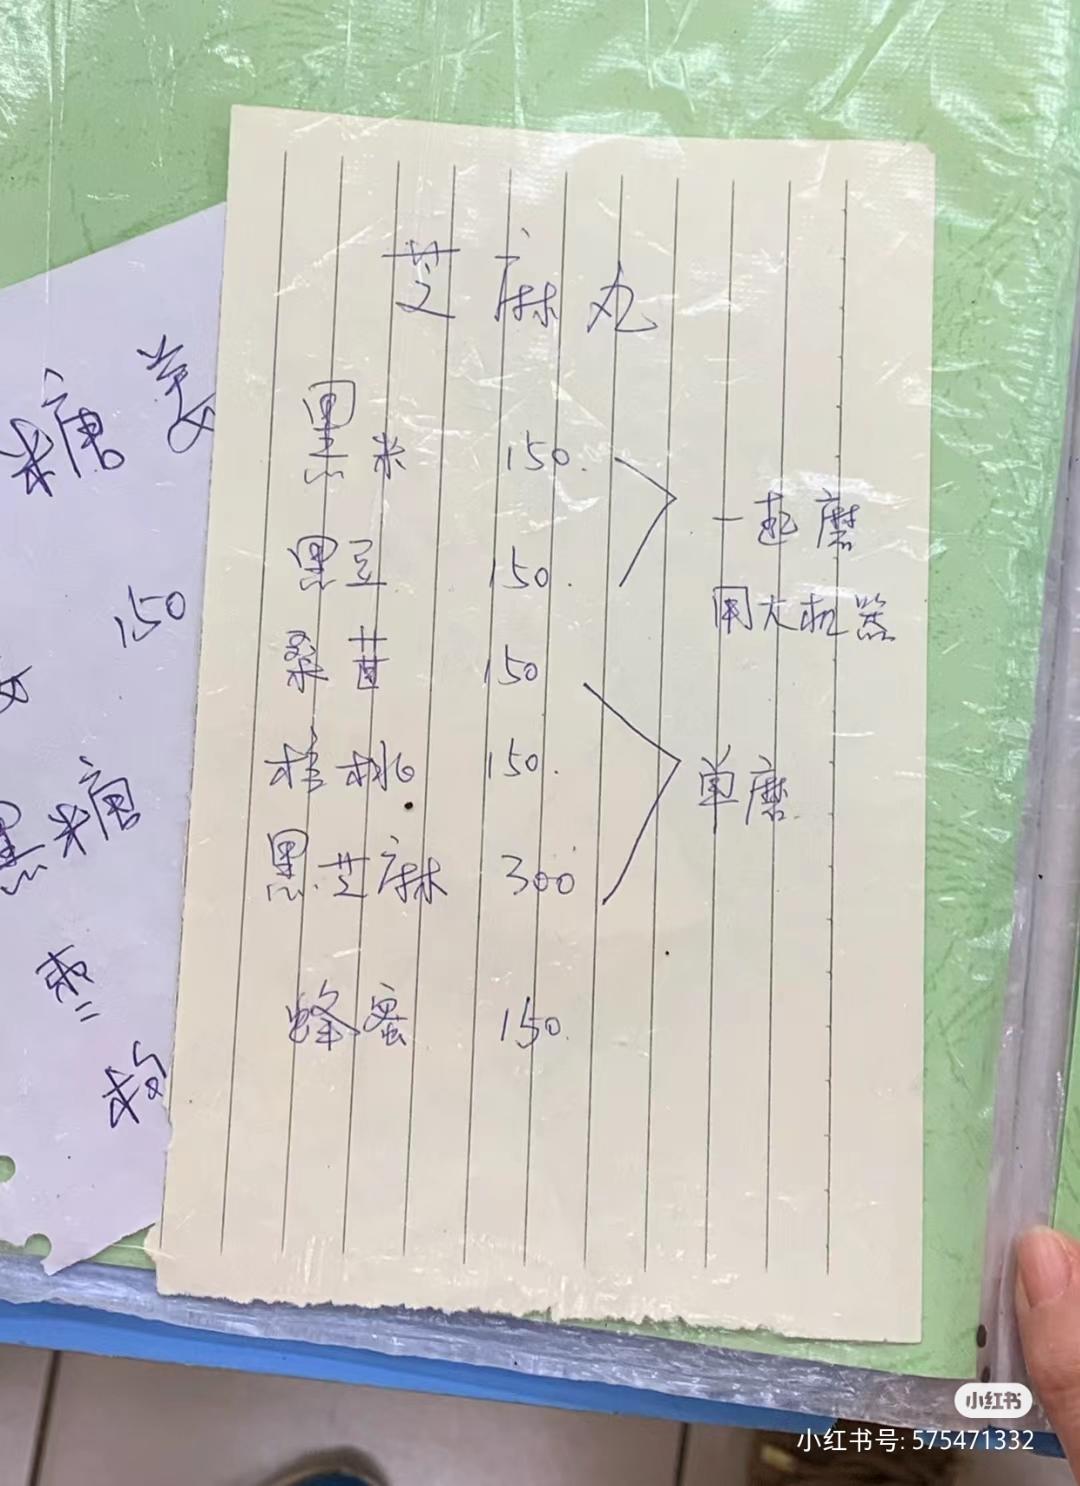 芝麻丸
黑米 150.
黑豆 150.
一起磨
用大机器
桑葚 150
核桃 150.
黑芝麻 300
单磨
蜂蜜 150.
糖姜
150
黑糖
枣
枸
小红书
小红书号: 575471332